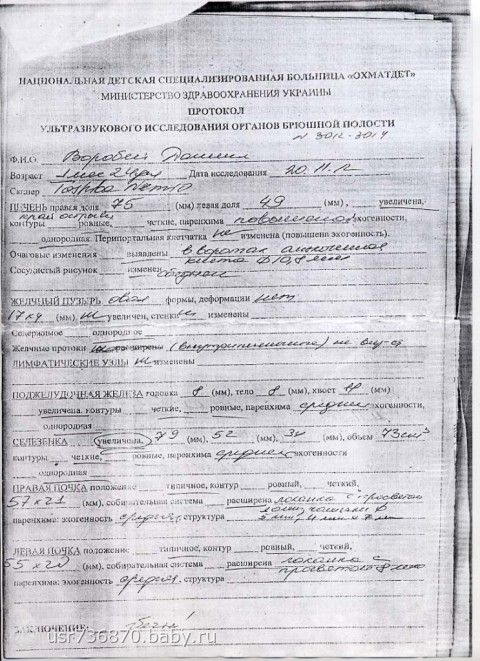 НАЦИОНАЛЬНАЯ ДЕТСКАЯ СПЕЦИАЛИЗИРОВАННАЯ БОЛЬНИЦА «ОХМАТДЕТ»
МИНИСТЕРСТВО ЗДРАВООХРАНЕНИЯ УКРАИНЫ
ПРОТОКОЛ
УЛЬТРАЗВУКОВОГО ИССЛЕДОВАНИЯ ОРГАНОВ БРЮШНОЙ ПОЛОСТИ
N 3012-3014
Ф.И.О. Воробей Даниил
Возраст 1 мес Дата исследования 20.11.12
Сканер Toshiba Nemio
ПЕЧЕНЬ правая доля 75 (мм) левая доля 49 (мм), увеличена,
край острый
контуры ровные, четкие, паренхима повышенной эхогенности,
однородная. Перипортальная клетчатка не изменена (повышенне эхогенности).
Очаговые изменения выявлены в воротах
киста
Сосудистый рисунок изменен обеднен
ЖЕЛЧНЫЙ ПУЗЫРЬ формы, деформации нет
(мм), не увеличен, стенки не изменены
Содержимое однородное
Желчные протоки не расширены (внутрипеченочные) не
ЛИМФАТИЧЕСКИЕ УЗЛЫ не изменены
ПОДЖЕЛУДОЧНАЯ ЖЕЛЕЗА головка 8 (мм), тело 8 (мм), хвост (мм)
увеличена, контуры четкие, ровные, паренхима средней эхогенности,
однородная
СЕЛЕЗЕНКА увеличена, 79 (мм), 52 (мм), 34 (мм), объем 73 см³
контуры четкие, ровные, паренхима средней эхогенности
однородная
ПРАВАЯ ПОЧКА положение типичное, контур ровный, четкий,
57 х 21 (мм), собирательная система расширена лоханка с просветом
паренхима: эхогенность средняя, структура
ЛЕВАЯ ПОЧКА положение: типичное, контур ровный, четкий,
55 х 20 (мм), собирательная система расширена лоханка с
просветом
паренхима: эхогенность средняя, структура
ЗАКЛЮЧЕНИЕ:
usr736870.baby.ru